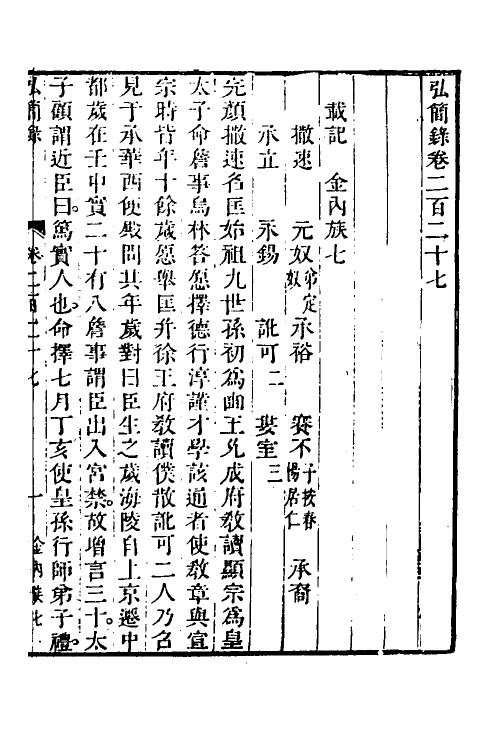 弘簡錄卷二百二十七
載記　金內族七
撒速　元奴弟定奴　承裕　賽不子按春楊居仁　承裔
承立　承錫　訛可二　婁室三
完顏撒速名匡始祖九世孫初爲豳王允成府教讀顯宗爲皇
太子命詹事烏林荅愿擇德行淳謹才學該通者使教章與宣
宗時皆年十餘歲愿舉匡升徐王府教讀僕散訛可二人乃召
見于承華西便殿問其年歲對曰臣生之歲海陵自上京遷中
都歲在壬申實二十有八詹事謂臣出入宮禁故增言三十太
子顧謂近臣曰篤實人也命擇七月丁亥使皇孫行師弟子禮
弘簡錄　卷二百二十七　一　金內族七